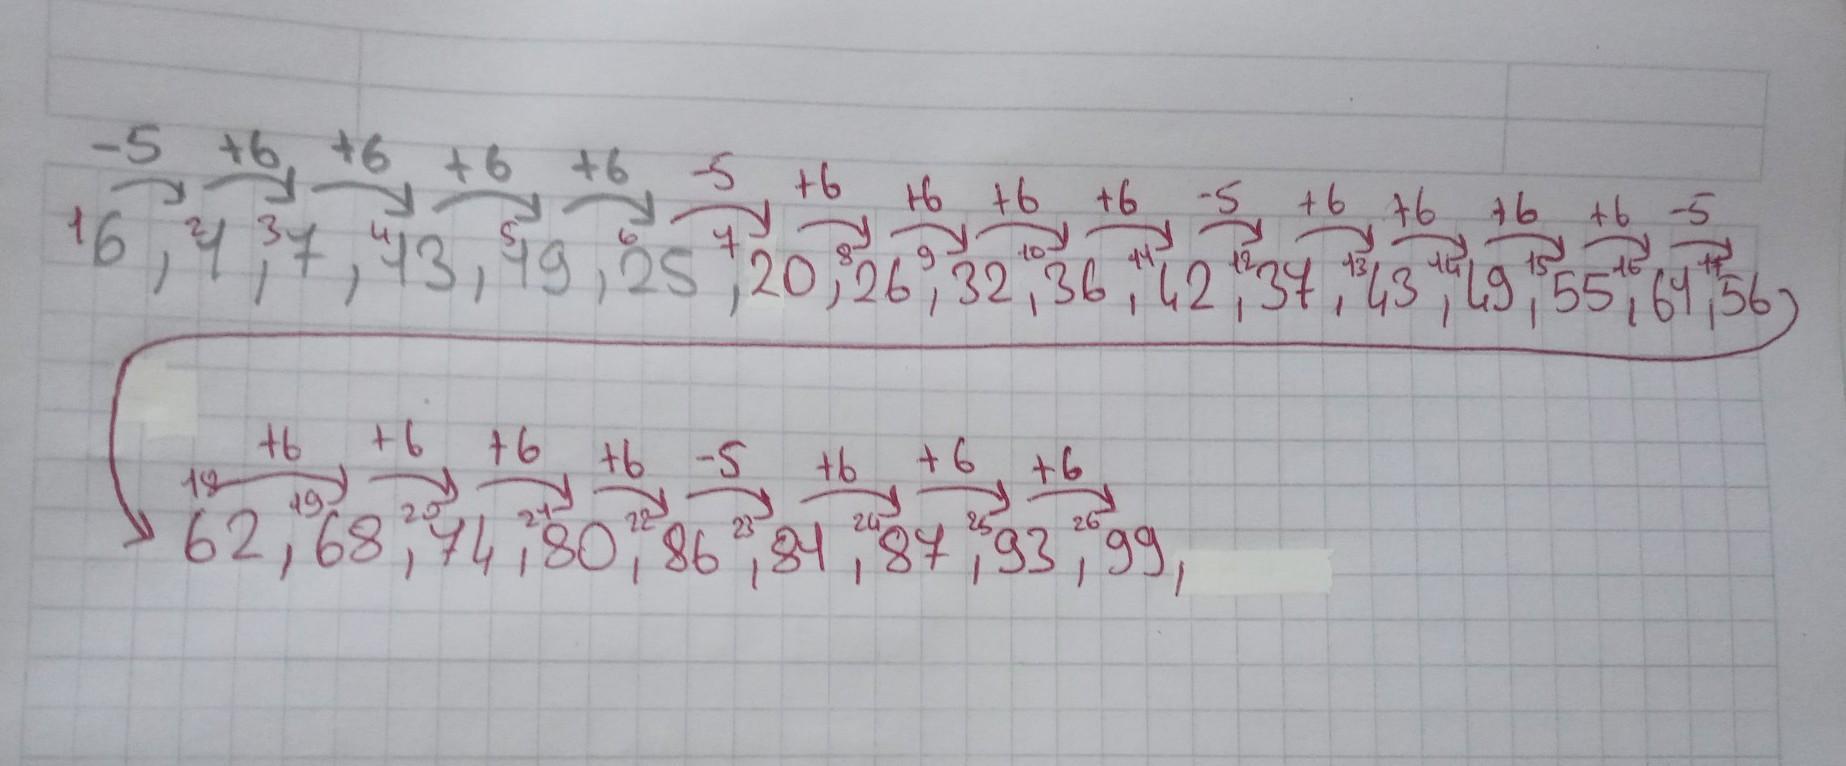 -5 +6 +6 +6 +6 -5 +6 +6 +6 +6 -5 +6 +6 +6 +6 -5
1 2 3 4 5 6 7 8 9 10 11 12 13 14 15 16 17
6, 1, 7, 13, 19, 25, 20, 26, 32, 36, 42, 37, 43, 49, 55, 61, 56
+6 +6 +6 +6 -5 +6 +6 +6
18 19 20 21 22 23 24 25 26
62, 68, 74, 80, 86, 81, 87, 93, 99,